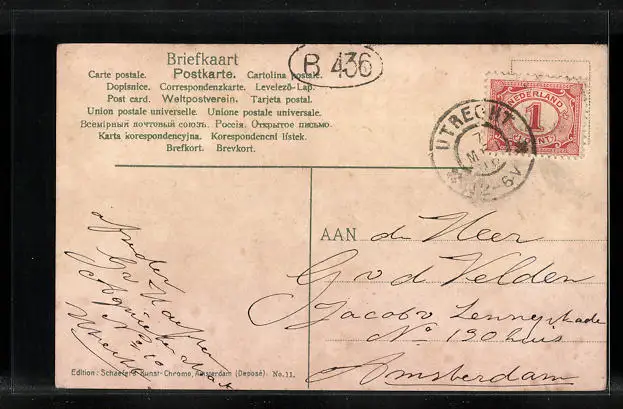 Briefkaart
Carte postale. Postkarte. Cartolina postale.
Dopisnice. Correspondenzkarte. Levelező-Lap.
Post card. Weltpostverein. Tarjeta postal.
Union postale universelle. Unione postale universale.
Всемірный почтовый союзъ. Россія. Открытое письмо.
Karta korespondencyjna. Korespondencni lístek.
Brefkort. Brevkort.
B 436
NEDERLAND
1
CENT
UTRECHT
7
12-6V
AAN de Heer
G v d Velden
Jacob v Lennepkade
No 130 huis
Amsterdam
afzender
No 10
Utrecht
Edition: Schaefers Kunst-Chrome, Amsterdam (Deposé) No. 11.